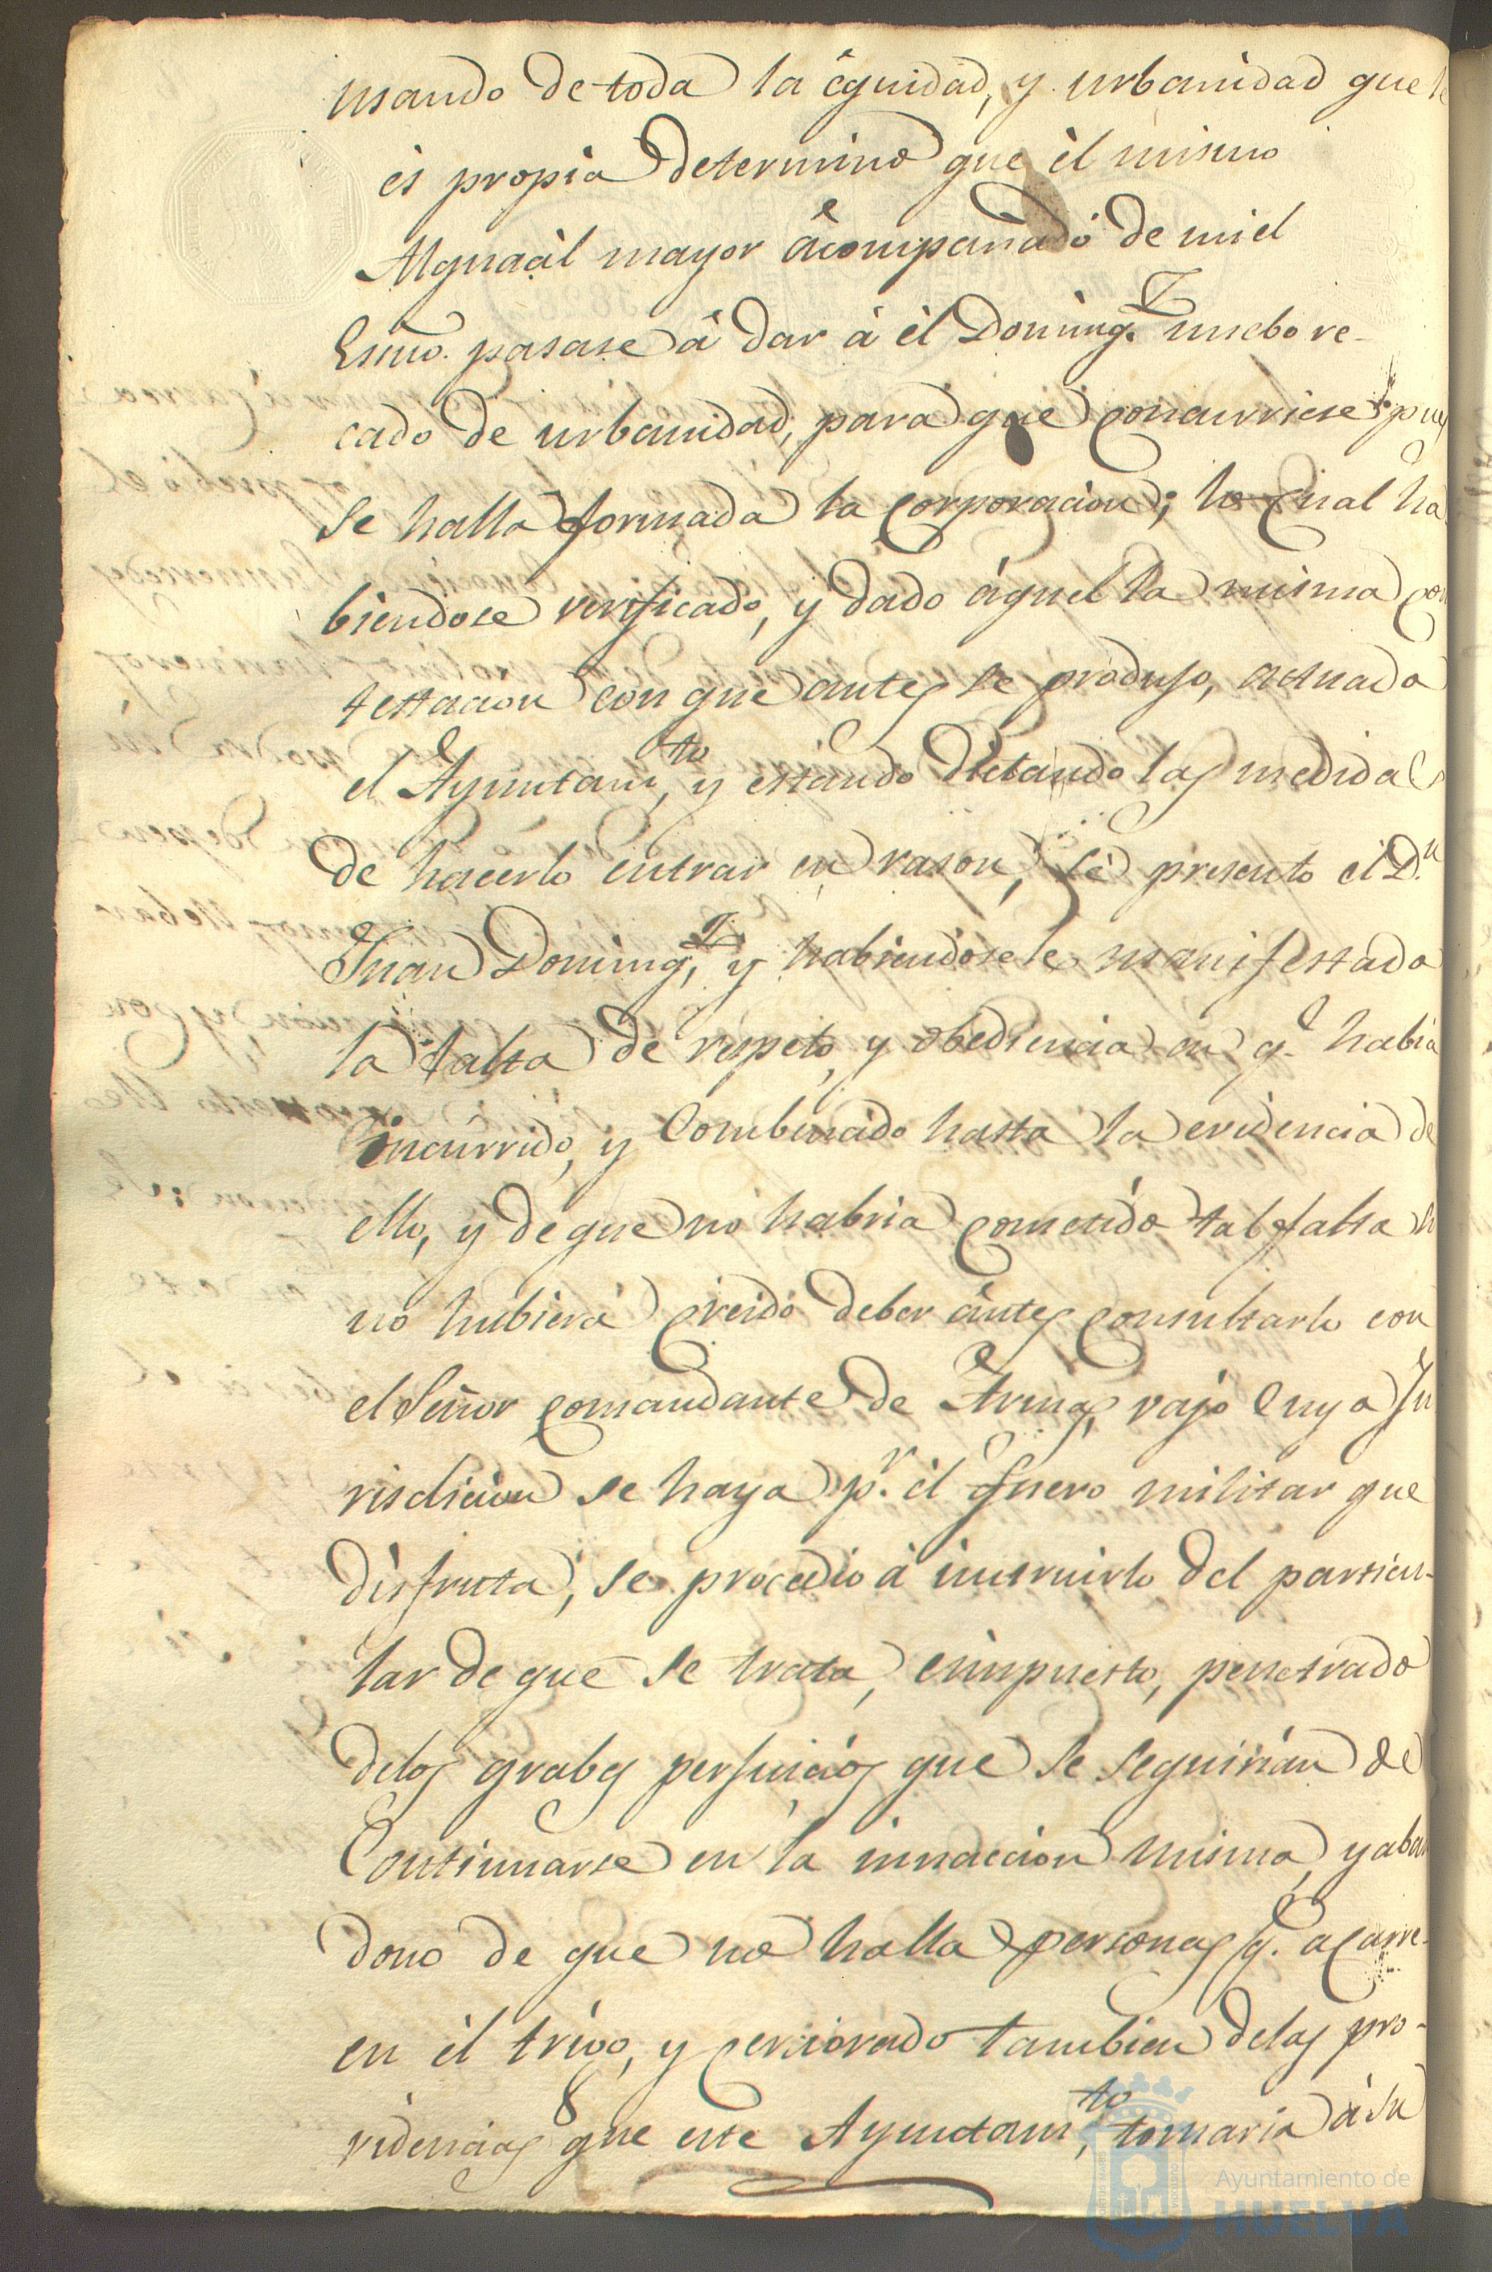 usando de toda la êquidad, y urbanidad que le
ês propia determinò que èl mismo
Alguacil mayor âcompañado de mi el
Esnô. pasase â dar à èl Doming.z nuebo re-
cado de urbanidad, para que concurriese pues
se halla formada la corporacion; lo cual ha
biendose verificado, y dado áquel la misma con
testacion con que antes se produjo, actuado
el Ayuntam.to, y estando dictando las medidas
de hacerlo entrar en rason, sè presento èl D.n
Juan Doming.z, y habiendosele manifestado
la falta de respeto, y obediencia en q.e habia
incurrido, y Combencido hasta la evidencia de
ello, y de que no habria cometido tal falta si
no hubiera creido deber ântes consultarlo con
el Señor comandante de Armas, vajo cuya Ju
risdicion se haya p.r èl fuero militar que
disfruta, se procedio à instruirlo del particu-
lar de que se trata, èimpuesto, penetrado
delos grabes perjuicios que se seguirian de
Continuarse en la innaccion misma, y aban
dono de que no halla personas q.e acarre-
en èl trigo, y cerciorado tambien delas pro-
videncias que este Ayuntam.to, tomaria à su
Ayuntamiento de
HUELVA